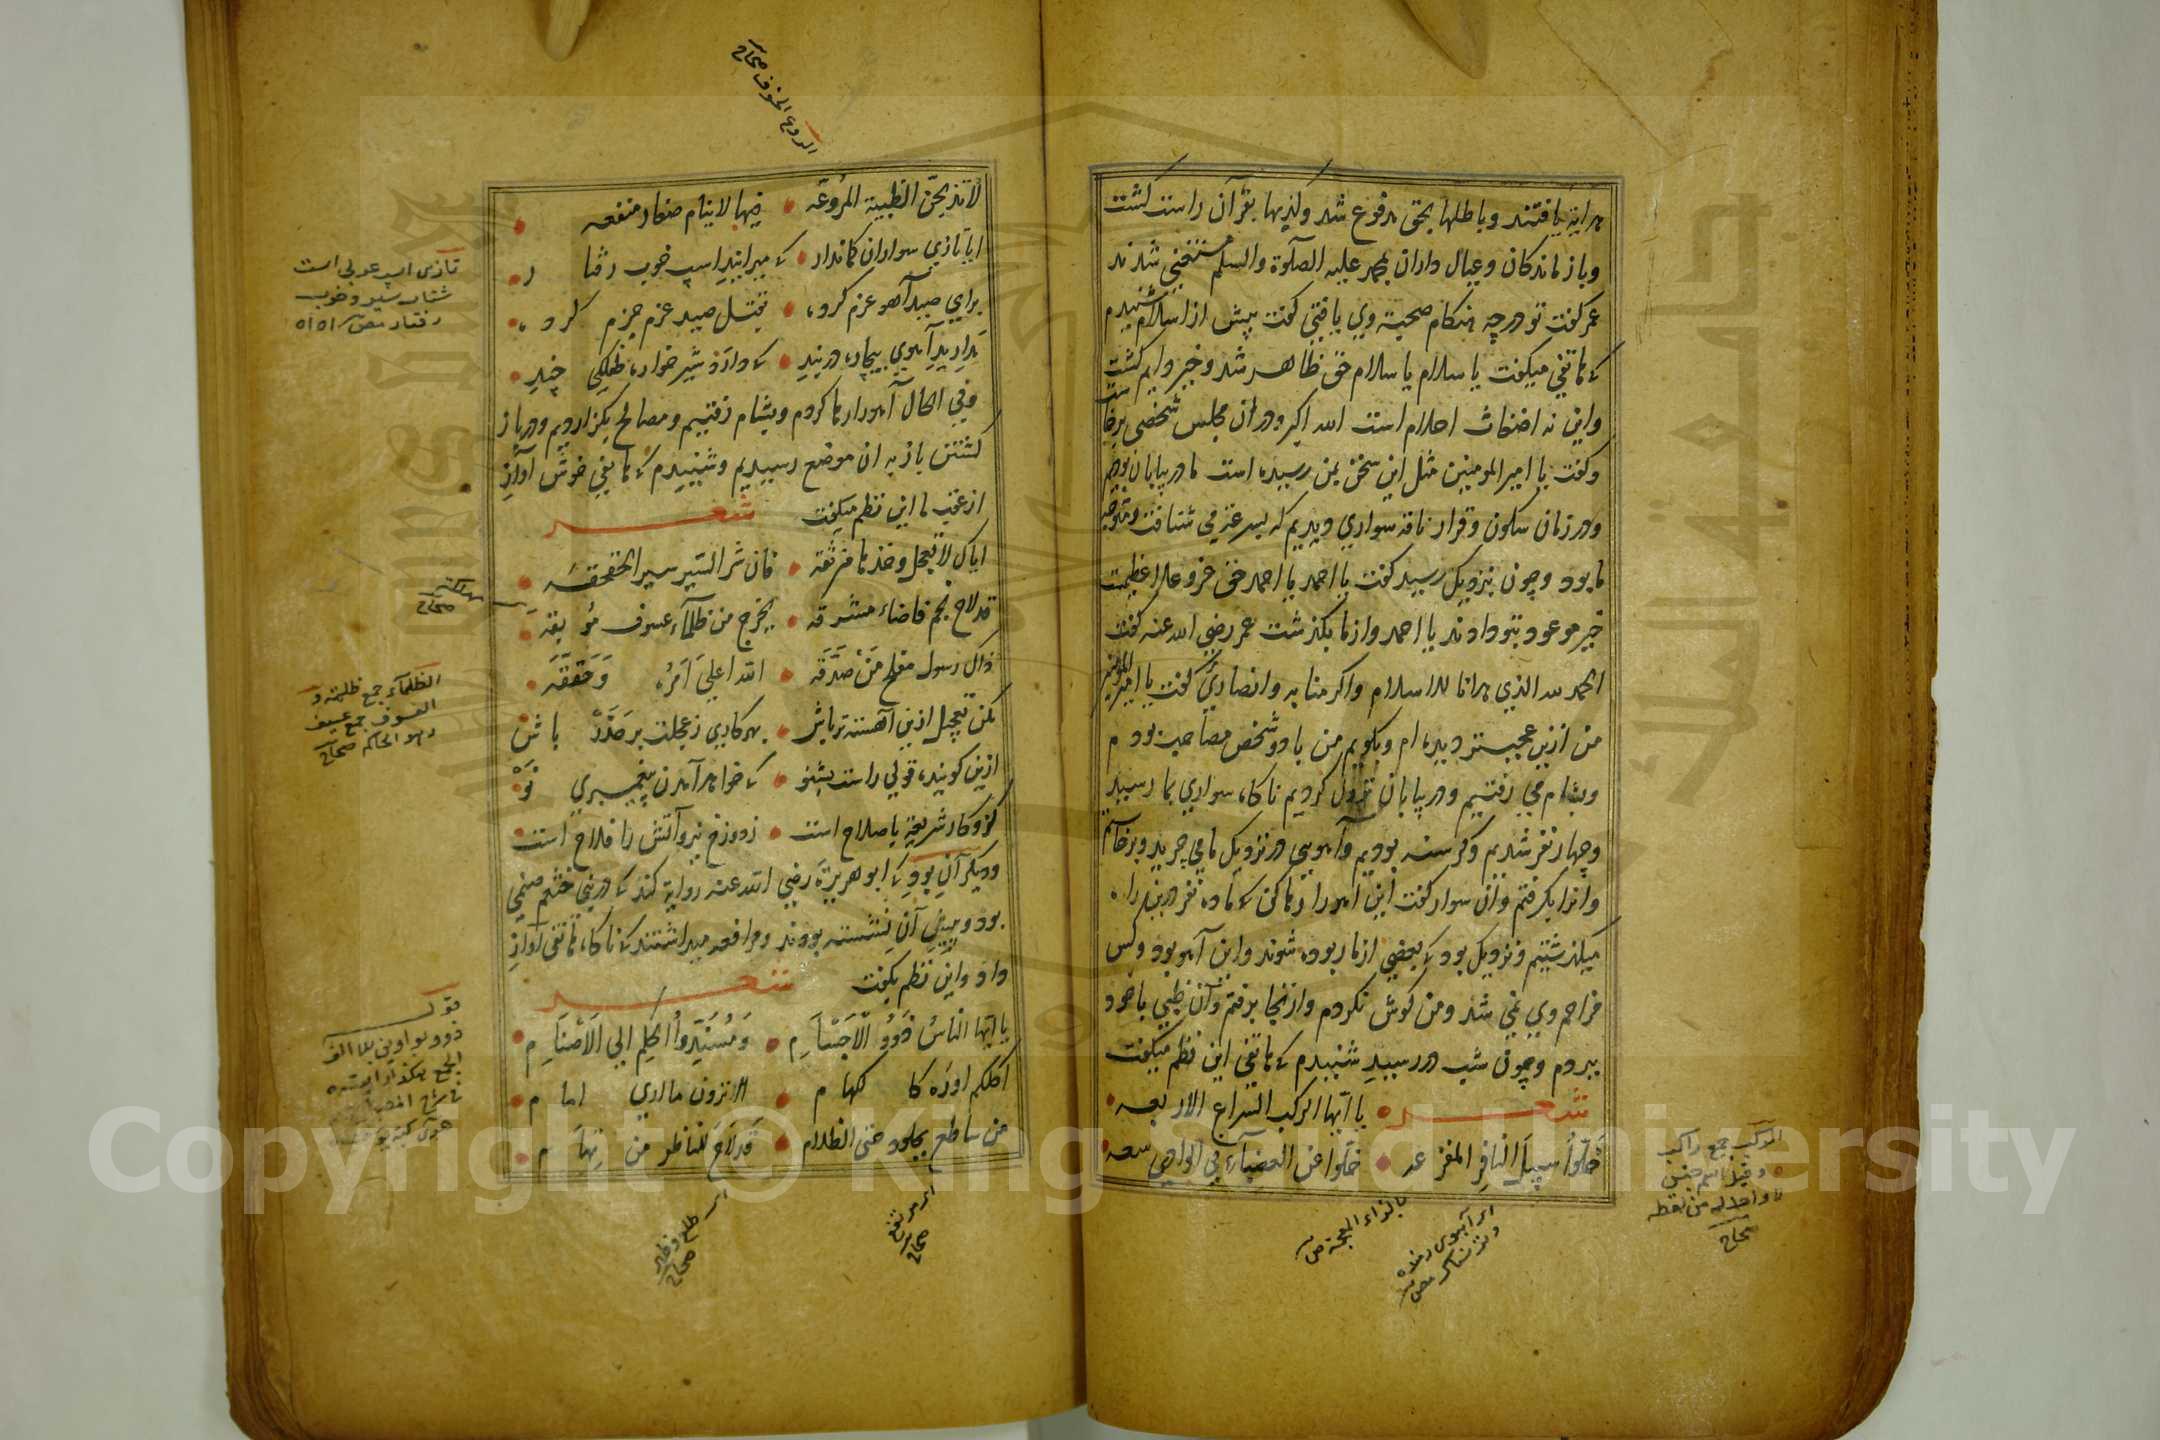 هدایة یافتند و باطلها بحق مدفوع شد و کذبها بقرآن راست کشت
و باز ماندکان و عیال داران بمحمد علیه الصلوة والسلم مستغنی شدند
عمر کفت تو در چه هنکام صحبت وی یافتی کفت پیش از اسلام شنیدم
که هاتفی میکفت یا سلام یا سلام حق ظاهر شد و خیر دایم کشت
و این نه اضغاث احلام است الله اکبر و در ان مجلس شخصی برخاست
و کفت یا امیر المومنین مثل این سخن بمن رسیده است ما در بیابان بودیم
و در زمان سکون و قرار ناقه سواری دیدیم که بسرعة می شتافت و متوجه
ما بود و چون نزدیک رسید کفت یا احمد یا احمد حق عز و علا عظمت
خیر موعود بتو دادند یا احمد و از ما بکذشت عمر رضی الله عنه کفت
الحمد لله الذی هدانا للاسلام و اکرمنا به و انصاری کفت یا امیر المومنین
من ازین عجبتر دیده ام و بکویم من با دو شخص مصاحب بودم
و بشام می رفتیم و در بیابان نزول کردیم ناکاه سواری بما رسید
و چهار نفر شدیم و کرسنه بودیم و آهویی در نزدیک ما می چرید و برخاستم
و انرا بکرفتم و ان سوار کفت این اهو را رها کن که ما ده نفر درین راه
میکذشتیم و نزدیک بود که بعضی از ما ربوده شوند و این آهو بود و کس
مزاحم وی نمی شد و من کوش نکردم و ازنجا برفتم و آن ظبی با خود
ببردم و چون شب در رسید شنیدم که هاتفی این نظم میکفت
شعر • یا ایها الرکب السراع الاربعه •
خلوا سبیل النافر المفزعه • خلوا عن العضباء فی الوادی سعه
الرکب جمع راکب
و قیل اسم جنس
لا واحد له من لفظه
صحاح
بالزاء المعجمة
ای آهوی رمنده
الروع الخوف صحاح
لا تذبحن الظبیة المروعه • فیها لایتام صغار منفعه •
ایا تازی سواران کماندار • که میرانید اسپ خوب رفتار •
برای صید آهو عزم کرده • بقتل صید عزم جزم کرده •
مدارید آهوی بیچاره در بند • که دارد شیر خواره طفلکی چند •
و فی الحال آهو را رها کردم و بشام رفتیم و مصالح بکزاردیم و در باز
کشتن باز به ان موضع رسیدیم و شنیدم که هاتفی خوش آواز
از عقب ما این نظم میکفت شعر
ایاک لا تعجل وخذها من ثقه • فان شر السیر سیر الحقحقه •
قد لاح نجم فاضاء مشرقه • یخرج من ظلماء عسوف موبقه •
ذاک رسول مفلح من صدقه • الله اعلی امره وحققه •
مکن تعجیل ازین آهسته تر باش • بهر کاری ز عجلت بر حذر باش
ازین کوینده قولی راست بشنو • که خواهد آمدن پیغمبری نو
کزو کار شریعة با صلاح است • ز دوزخ نیز و آتش را فلاح است
و دیکر آن بود که ابو هریرة رضی الله عنه روایة کند که در بنی خثعم صنمی
بود و پیش آن نشسته بودند و مرافعه میداشتند که ناکاه هاتفی آواز
داد و این نظم بکفت شعر
یا ایها الناس ذوو الاجسام • ومسندوا الحکم الی الاصنام •
اکلکم اوره کالکهام • الا ترون ما اری امامی •
من ساطع یجلو دجی الظلام • قد لاح للناظر من تهام •
تازی اسپ عربی است
الظلماء جمع ظلمة و
العسوف جمع عسیف
وهو الحاکم صحاح
قوله
ذوو بواوین بلا الف
صحاح
ای من ثقة
صحاح
ای طلع و ظهر
صحاح
Copyright © King Saud University